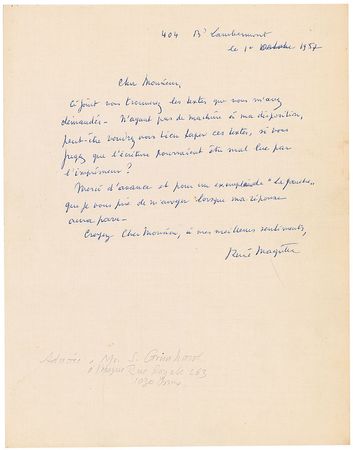 404 Bd Lambermont
le 1er Octobre 1957
Cher Monsieur,
Ci-joint vous trouverez les textes que vous m'avez
demandés - N'ayant pas de machine à ma disposition,
peut-être voudrez vous bien taper ces textes, si vous
jugez que l'écriture pourraient être mal lue par
l'imprimeur?
Merci d'avance et pour un exemplaire
que je vous prie de m'envoyer lorsque ma réponse
aura paru -
Croyez Cher Monsieur, à mes meilleurs sentiments,
René Magritte
à Mr. S.
Rue Royale 263
1030